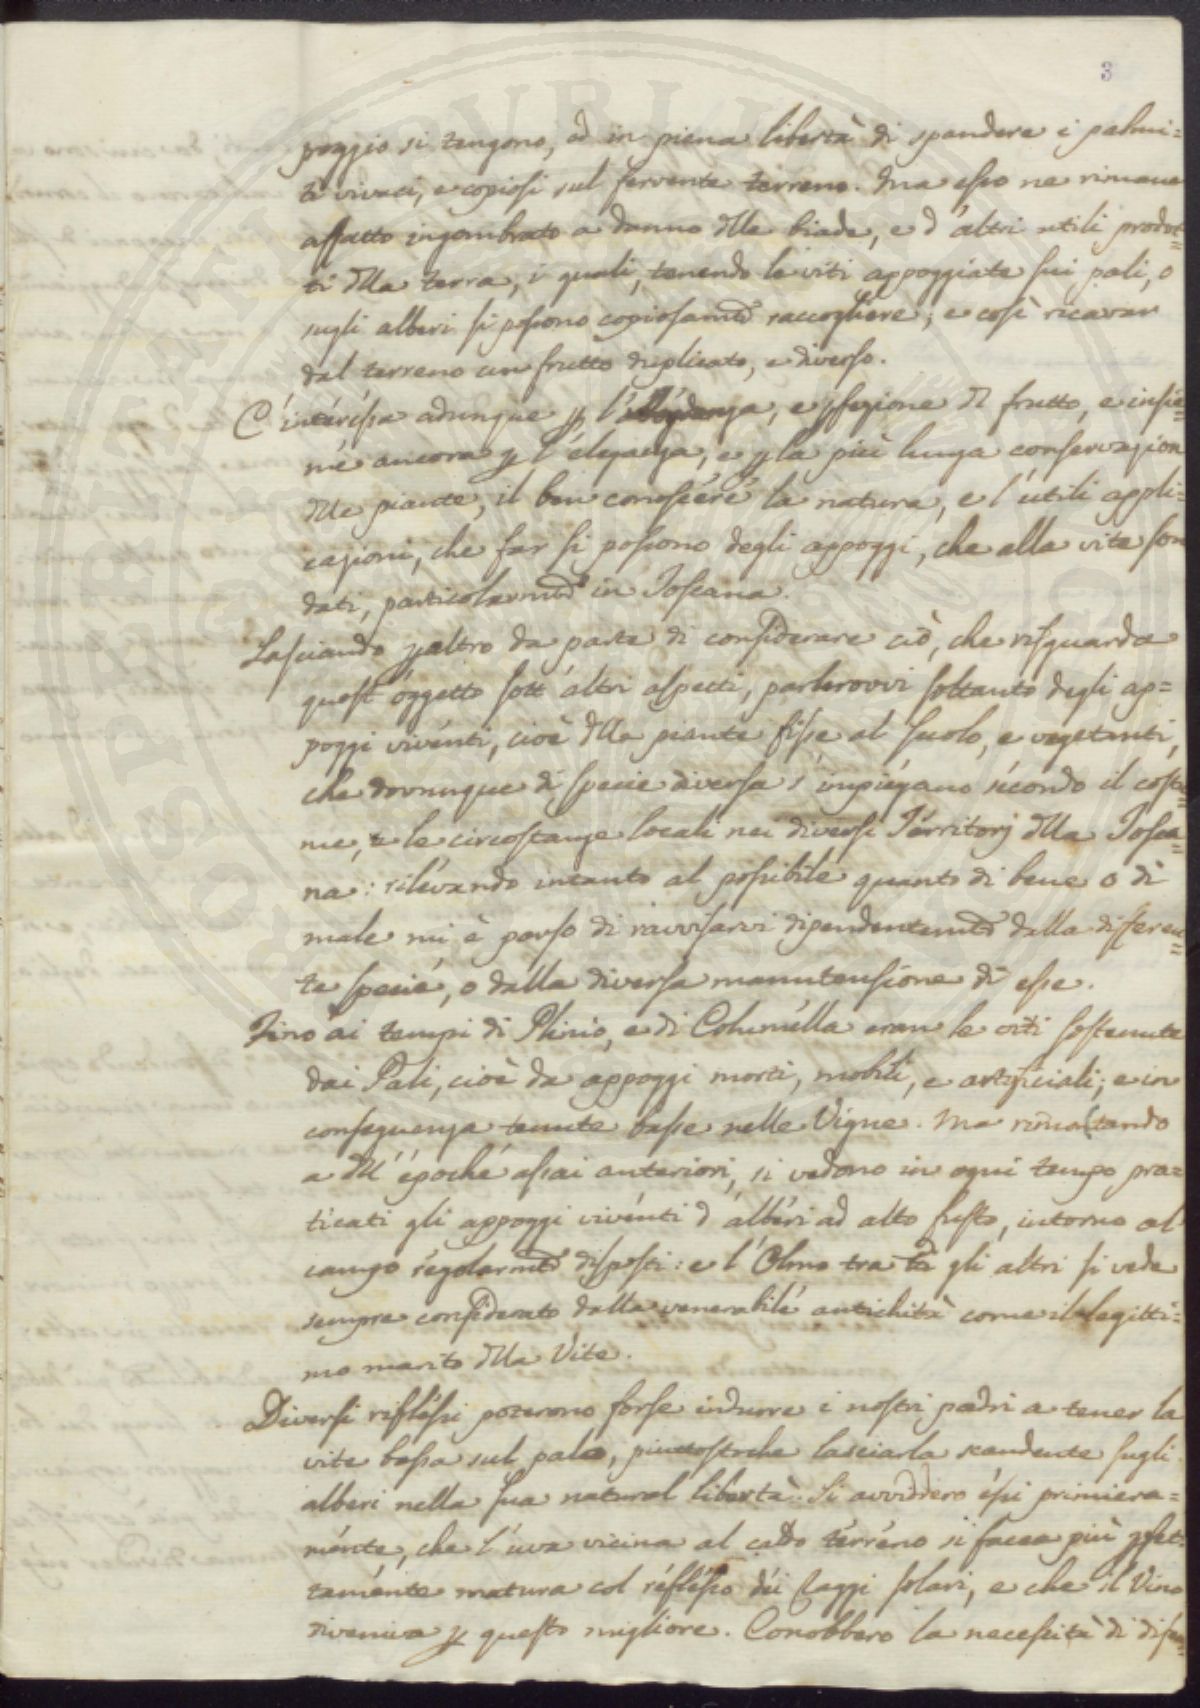 3
poggio si tengono, ed in piena libertà di spandere i palmi=
ti vivaci, e copiosi sul fervente terreno. Ma esso ne rimane
affatto ingombrato a danno dlle biade, e d'altri utili prodot=
ti dlla terra, i quali, tenendo le viti appoggiate sui pali, o
sugli alberi si possono copiosamte raccogliere; e così ricavar
dal terreno un frutto duplicato, e diverso.
C'interessa adunque p l', e pfezione dl frutto, e insie=
me ancora p l'eleganza, e p la più lunga conservazion
dlle piante, il ben conoscere la natura, e l'utili appli=
cazioni, che far si possono degli appoggi, che alla vite son
dati, particolarmte in Toscana.
Lasciando paltro da parte di considerare ciò, che risguarda
quest'oggetto sott'altri aspetti, parlerovvi soltanto degli ap=
poggi viventi, cioè dlle piante fisse al suolo, e vegetanti,
che dovunque di specie diversa s'impiegano secondo il costu=
me, e le circostanze locali nei diversi Territorj dlla Tosca=
na: rilevando intanto al possibile quanto di bene o di
male mi è parso di ravvisarvi dipendentemte dalla differen=
te specie, o dalla diversa manutensione di esse.
Fino ai tempi di Plinio, e di Columella eran le viti sostenute
dai Pali, cioè da appoggi morti, mobili, e artificiali; e in
conseguenza tenute basse nelle Vigne. Ma rimontando
a dll'epoche assai anteriori, si vedono in ogni tempo pra=
ticati gli appoggi viventi d'alberi ad alto fusto, intorno al
campo regolarmte disposti: e l'Olmo tra tti gli altri si vede
sempre considerato dalla venerabile antichità come il legitti=
mo marito dlla Vite.
Diversi riflessi poterono forse indurre i nostri padri a tener la
vite bassa sul palo, piuttostoche lasciarla scandente sugli
alberi nella sua natural libertà. Si avviddero essi primiera=
mente, che l'uva vicina al caldo terreno si facea più pfet=
tamente matura col riflesso dei Raggi solari, e che il Vino
diveniva p questo migliore. Conobbero la necessità di difen=